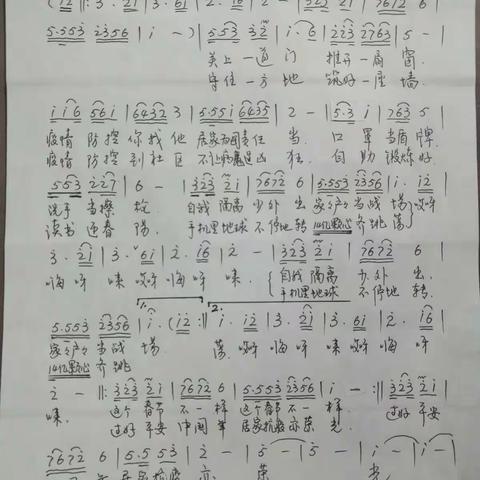 5.553 2356 | i - ) | 5.553 32 | i . 6 | 223 2763 | 5 - |
关上一道门 推开一扇窗.
守住一方地 筑好一座墙.
i i 6 5 6 i | 6432 3 | 5.55 i 6435 | 2 - | 5.3 i | 763 5 |
疫情 防控 你我他 居家为国责任 当. 口罩 当盾牌.
疫情 防控 到社区 不让病魔逞凶 狂. 自助 锻炼好
5.53 227 | 6 - | 323 2 i | 7672 6 | 5.553 2356 | i . i2 |
洗手 当擦 枪 自我 隔离 少外 出 家家户户 当战 场 哎呀
读书 迎春 阳 手机里地球 不停地 转 14亿颗心 齐跳 荡
3 . 2 i | 3 . 6 i | 2 . i6 | 2 - | 323 2 i | 7672 6 |
嗨呀 味 哎呀 嗨呀 味. 自我 隔离 少外 出.
手机里地球 不停地 转.
5.553 2356 | i . (i2 :|| i . i2 | 3 . 2 i | 3 . 6 i | 2 . i6 |
家家户户 当战 场 荡. 哎呀 嗨呀 味 哎呀 嗨呀
14亿颗心 齐跳
2 - ||: 323 2 i | 7672 6 | 5.553 2356 | i - :|| 323 2 i |
味. 这个 春节 不一 样 这个春节 不一 样. 过好 平安
过好 平安 中国 年 居家抗疫 亦荣 光.
7672 6 | 5.5 5 3 | 2 - | 5 - | 5 - | i - | i - |
年 居家抗疫 亦 荣 光.